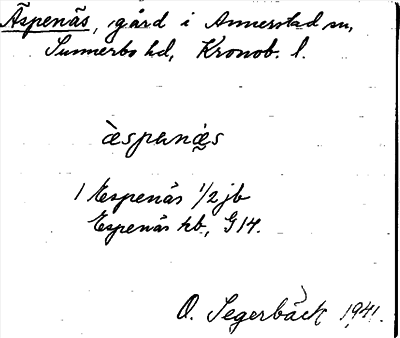 Äspenäs, gård i Annerstad sn,
Sunnerbo hd, Kronob. l.
æ̀spənæ̀s
1 Espenäs 1/2 jb
Espenäs hb., G14.
O. Segerbäck 1941.